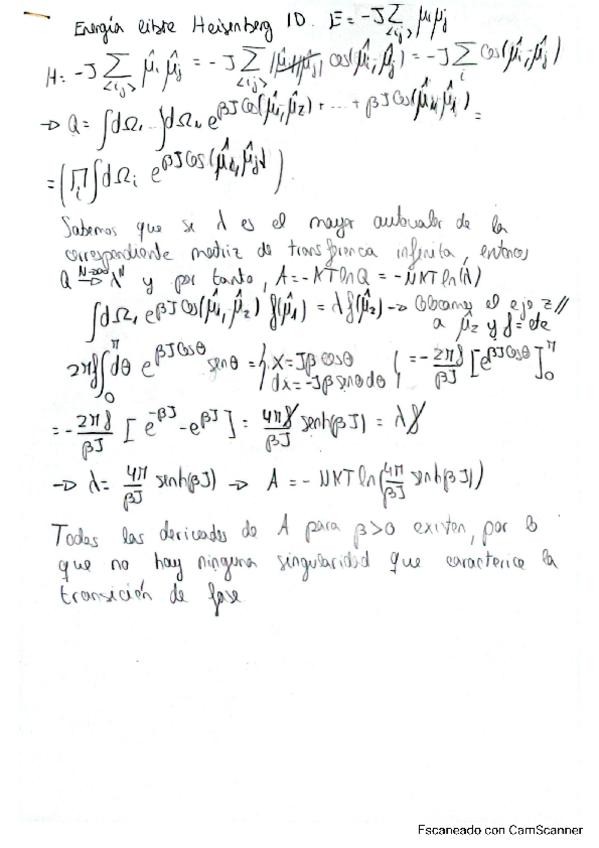 Energía libre Heisenberg 1D. E = -J∑_{<ij>} μ_i μ_j
H = -J ∑_{<ij>} μ̂_i μ̂_j = -J ∑_{<ij>} |μ̂_i||μ̂_j| cos(μ̂_i, μ̂_j) = -J ∑_i cos(μ̂_i, μ̂_j)
→ Q = ∫dΩ_1 ... ∫dΩ_N e^{βJ cos(μ̂_1, μ̂_2) + ... + βJ cos(μ̂_N, μ̂_1)} =
= (∏_i ∫dΩ_i e^{βJ cos(μ̂_i, μ̂_j)})
Sabemos que si λ es el mayor autovalor de la
correspondiente matriz de transferencia infinita, entonces
Q →^{N→∞} λ^N y por tanto, A = -KT ln Q = -NKT ln(λ)
∫dΩ_1 e^{βJ cos(μ̂_1, μ̂_2)} f(μ̂_1) = λ f(μ̂_2) → Colocamos el eje z //
a μ̂_2 y f = cte
2πf ∫_0^π dθ e^{βJ cosθ} senθ = { x = Jβ cosθ
dx = -Jβ senθ dθ } = -2πf/βJ [e^{βJ cosθ}]_0^π
= -2πf/βJ [e^{-βJ} - e^{βJ}] = 4πf/βJ senh(βJ) = λf
→ λ = 4π/βJ senh(βJ) → A = -NKT ln(4π/βJ senh(βJ))
Todas las derivadas de A para β>0 existen, por lo
que no hay ninguna singularidad que caracterice la
transición de fase
Escaneado con CamScanner